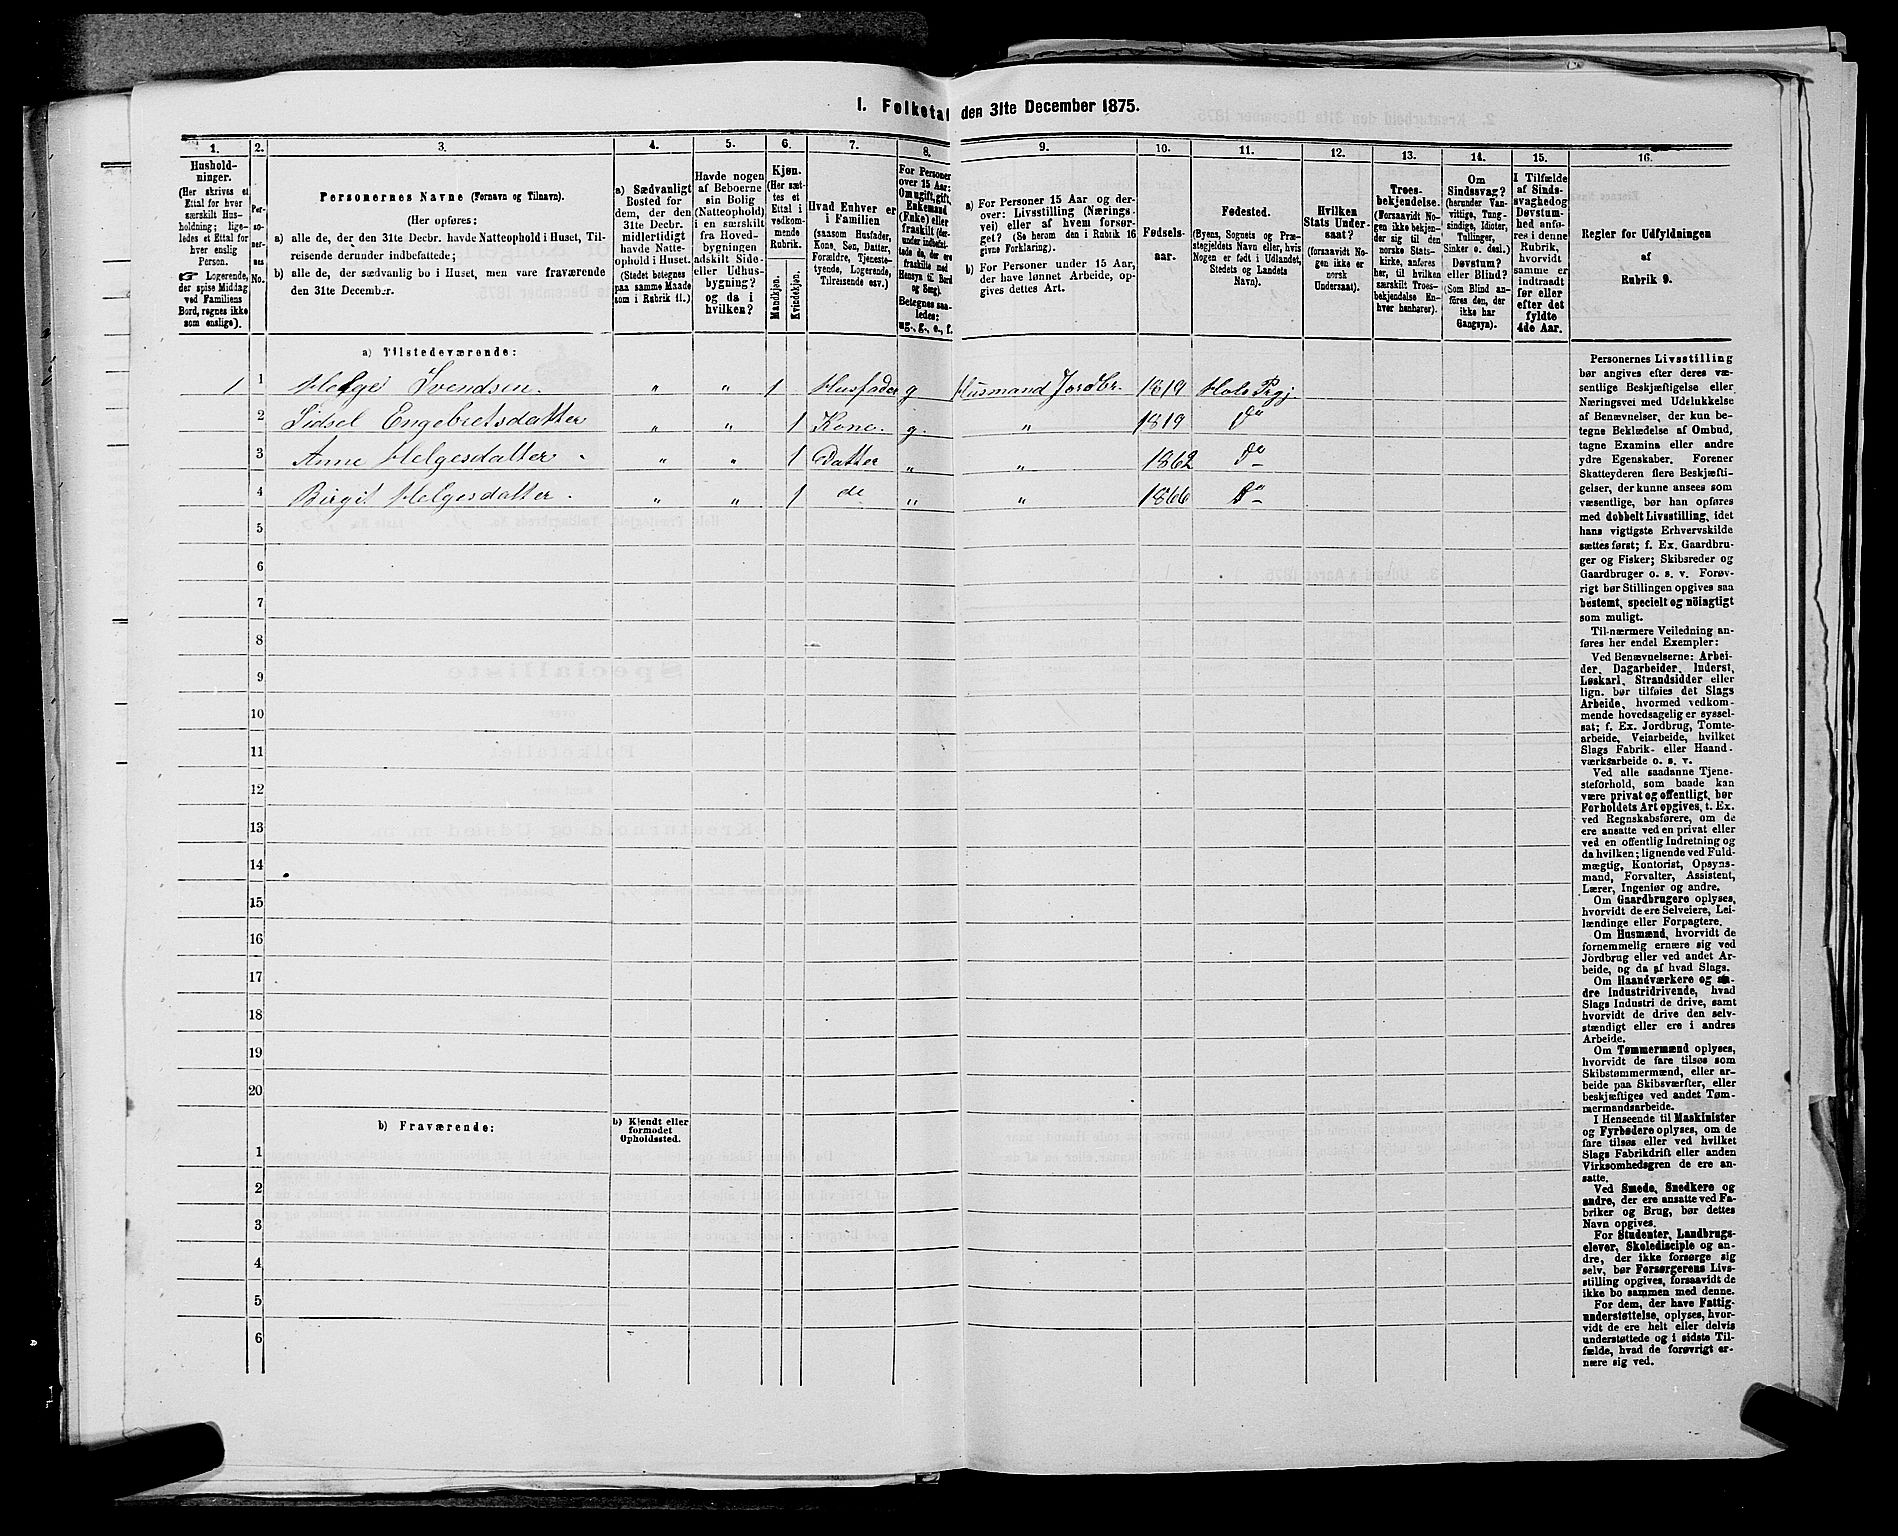 I. Folketal den 31te December 1875.
1. 2. 3. 4. 5. 6. 7. 8. 9. 10. 11. 12. 13. 14. 15. 16.
Hushold-
ninger.
(Her skrives et
Ettal for hver
særskilt Hus-
holdning; lige-
ledes et Ettal for
hver enslig
Person.
☞ Logerende,
der spise Middag
ved Familiens
Bord, regnes ikke
som enslige).
Per-
so-
ner-
nes
No.
Personernes Navne (Fornavn og Tilnavn).
(Her opføres:
a) alle de, der den 31te Decbr. havde Natteophold i Huset, Til-
reisende derunder indbefattede;
b) alle de, der sædvanlig bo i Huset, men vare fraværende
den 31te December.
a) Sædvanligt
Bosted for
dem, der den
31te Decbr.
midlertidigt
havde Natte-
ophold i Huset.
(Stedet betegnes
paa samme Maade
som i Rubrik 11.)
Havde nogen
af Beboerne
sin Bolig
(Natteophold)
i en særskilt
fra Hoved-
bygningen
adskilt Side-
eller Udhus-
bygning?
og da i
hvilken?
Kjøn.
(Her sæt-
tes et
Ettal i
vedkom-
mende
Rubrik.
Mandkjøn.
Kvindekjøn.
Hvad Enhver er
i Familien
(saasom Husfader,
Kone, Søn, Datter,
Forældre, Tjeneste-
tyende, Logerende,
Tilreisende osv.)
For Personer
over 15 Aar:
Om ugift, gift,
Enkemand
(Enke) eller
fraskilt (der-
under indbefat-
tede de, der ere
fraskilte med
Hensyn til Bord
og Seng).
Betegnes saa-
ledes:
ug., g., e., f.
a) For Personer 15 Aar og der-
over: Livsstilling (Nærings-
vei) eller af hvem forsør-
get? (Se herom den i Rubrik 16
givne Forklaring).
b) For Personer under 15 Aar,
der have lønnet Arbeide, op-
gives dettes Art.
Fødsels-
aar.
Fødested.
(Byens, Sognets og Præ-
stegjeldets Navn eller, hvis
Nogen er født i Udlandet,
Stedets og Landets
Navn).
Hvilken
Stats Under-
saat?
(forsaavidt No-
gen ikke er
norsk
Undersaat).
Troes-
bekjendelse.
(Forsaavidt No-
gen ikke bekjen-
der sig til den
norske Stats-
kirke, anføres
her, til hvilken
særskilt Troes-
bekjendelse En-
hver henhører).
Om
Sindssvag?
(herunder Van-
vittige, Tung-
sindige, Idioter,
Tullinger,
Sinker o. desl.)
Døvstum?
eller Blind?
(Som Blind an-
føres den, der
ikke har
Gangsyn).
I Tilfælde
af Sinds-
svaghed og
Døvstum-
hed anfø-
res i denne
Rubrik,
hvorvidt
samme er
indtraadt
før eller
efter det
fyldte
4de Aar.
Regler for Udfyldningen
af
Rubrik 9.
a) Tilstedeværende:
1 1 Helge Svendsen. " " 1 Husfader g Husmand Jordbr. 1819 Hole Prgj
2 Sidsel Engebretsdatter " " 1 Kone. g. " 1819 do
3 Anne Helgesdatter " " 1 Datter " " 1862 do
4 Birgit Helgesdatter. " " 1 do " " 1866 do
5
6
7
8
9
10
11
12
13
14
15
16
17
18
19
20
b) Fraværende:
b) Kjendt eller
formodet
Opholdssted.
1
2
3
4
5
6
Personernes Livsstilling
bør angives efter deres væ-
sentlige Beskjæftigelse eller
Næringsvei med Udelukkelse
af Benævnelser, der kun be-
tegne Beklædelse af Ombud,
tagne Examina eller andre
ydre Egenskaber. Forener
Skatteyderen flere Beskjæfti-
gelser, der kunne ansees som
væsentlige, bør han opføres
med dobbelt Livsstilling, idet
hans vigtigste Erhvervskilde
sættes først; f. Ex. Gaardbru-
ger og Fisker; Skibsreder og
Gaardbruger o. s. v. Forøv-
rigt bør Stillingen opgives saa
bestemt, specielt og nöiagtigt
som muligt.
Til nærmere Veiledning an-
føres her endel Exempler:
Ved Benævnelserne: Arbei-
der, Dagarbeider, Inderst,
Løskarl, Strandsidder eller
lign. bør tilføies det Slags
Arbeide, hvormed vedkom-
mende hovedsagelig er syssel-
sat; f. Ex. Jordbrug, Tomte-
arbeide, Veiarbeide, hvilket
Slags Fabrik- eller Haand-
værksarbeide o. s. v.
Ved alle saadanne Tjene-
steforhold, som baade kan
være privat og offentligt, bør
Forholdets Art opgives, t. Ex.
ved Regnskabsførere, om de
ere ansatte ved en privat eller
ved en offentlig Indretning og
da hvilken; lignende ved Fuld-
mægtig, Kontorist, Opsyns-
mand, Forvalter, Assistent,
Lærer, Ingeniør og andre.
Om Gaardbrugere oplyses,
hvorvidt de ere Selveiere, Lei-
lændinge eller Forpagtere.
Om Husmænd, hvorvidt de
fornemmelig ernære sig ved
Jordbrug eller ved andet Ar-
beide, og da af hvad Slags.
Om Haandværkere og an-
dre Industridrivende, hvad
Slags Industri de drive, samt
hvorvidt de drive den selv-
stændigt eller ere i andres
Arbeide.
Om Tømmermænd oplyses,
hvorvidt de fare tilsøs som
Skibstømmermænd, eller ar-
beide paa Skibsværfter, eller
beskjæftiges ved andet Tøm-
mermandsarbeide.
I Henseende til Maskinister
og Fyrbødere oplyses, om de
fare tilsøs eller ved hvilket
Slags Fabrikdrift eller anden
Virksomhedsgren de ere an-
satte.
Ved Smede, Snedkere og
andre, der ere ansatte ved Fa-
briker og Brug, bør dettes
Navn opgives.
For Studenter, Landbrugs-
elever, Skoledisciple og an-
dre, der ikke forsørge sig
selv, bør Forsørgerens Livs-
stilling opgives, forsaavidt de
ikke bo sammen med denne.
For dem, der have Fattig-
understøttelse, oplyses, hvor-
vidt de ere helt eller delvis
understøttede og i sidste Til-
fælde, hvad de forøvrigt er-
nære sig ved.